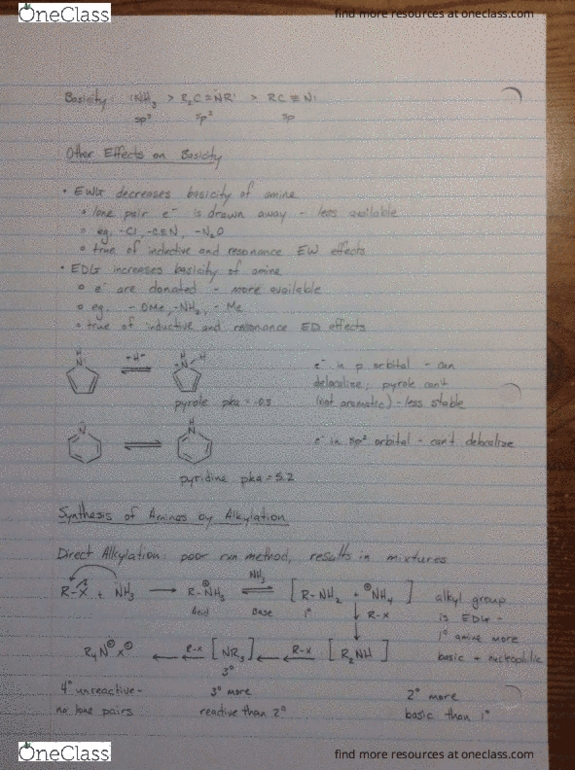 OneClass
find more resources at oneclass.com
Basicity: :NH₃ > R₂C=N̈R' > RC≡N:
sp³ sp² sp
Other Effects on Basicity
• EWG decreases basicity of amine
• lone pair e⁻ is drawn away - less available
• eg. -Cl, -C≡N, -N₂O
• true of inductive and resonance EW effects
• EDG increases basicity of amine
• e⁻ are donated - more available
• eg. - OMe, -NH₂, - Me
• true of inductive and resonance ED effects
N H +H⁺ H N H
e⁻ in p orbital - can
delocalize; pyrole can't
(not aromatic) - less stable
pyrole pka = -0.3
N H N
e⁻ in sp² orbital - can't delocalize
pyridine pka = 5.2
Synthesis of Amines by Alkylation
Direct Alkylation: poor rxn method, results in mixtures
R-X + N̈H₃ → R-N⊕H₃ ⇌ NH₃ [R-NH₂ + ⊕NH₄]
Acid Base 1°
alkyl group
is EDG -
1° amine more
basic + nucleophilic
R-X
R₄N⊕ X⊖ ← R-X [NR₃] ← R-X [R₂NH]
3°
4° unreactive -
no lone pairs
3° more
reactive than 2°
2° more
basic than 1°
OneClass
find more resources at oneclass.com